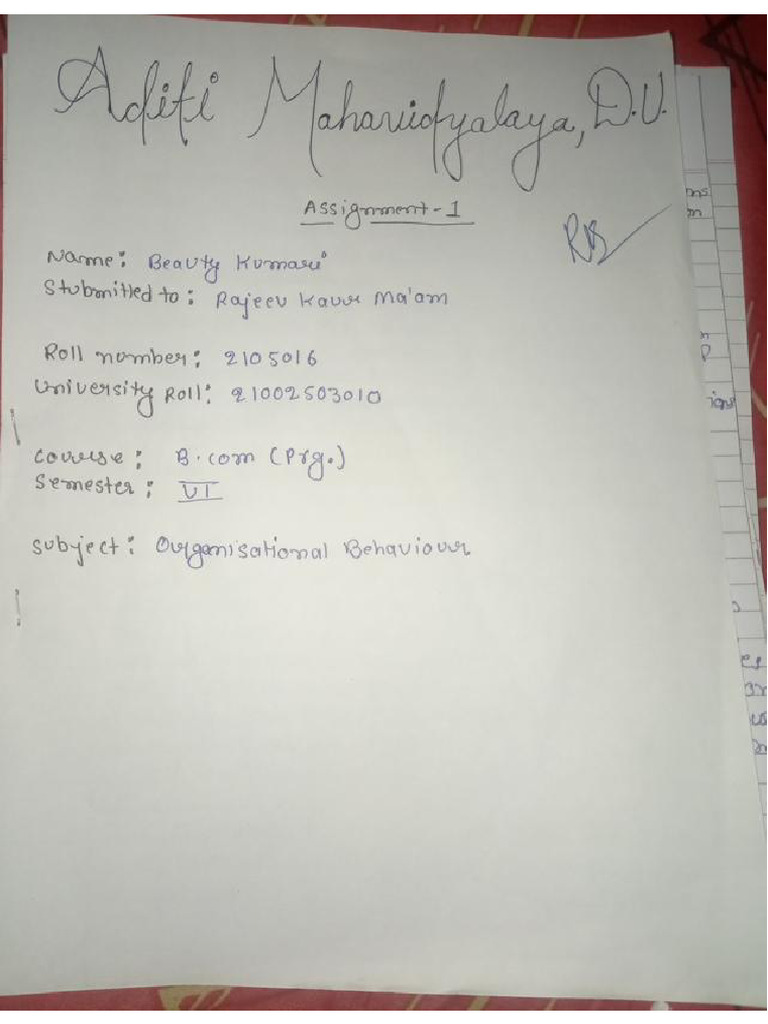 Aditi Mahavidyalaya, D.U.
Assignment-1
Name: Beauty Kumari
Stubmitted to: Rajeev Kaur Ma'am
Roll number: 2105016
University Roll: 21002503010
Course: B.com (Prg.)
Semester: VI
Subject: Organisational Behaviour